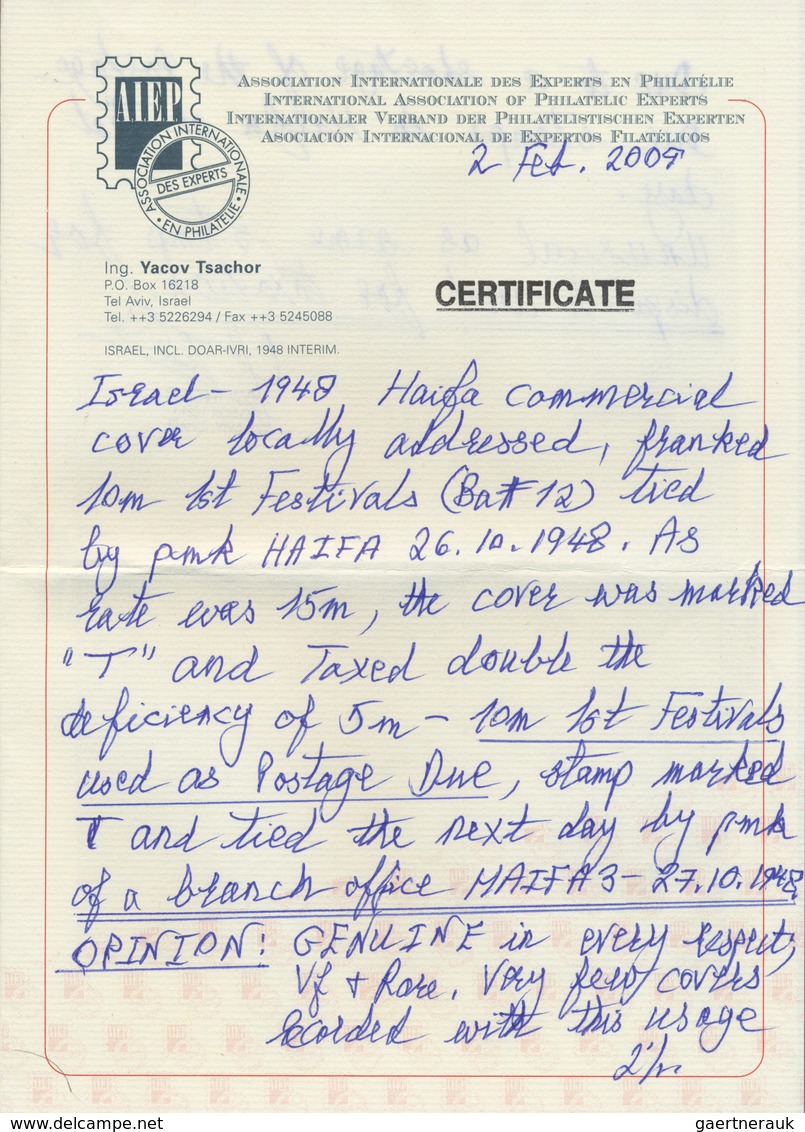 AIEP
ASSOCIATION INTERNATIONALE
DES EXPERTS
EN PHILATELIE
ASSOCIATION INTERNATIONALE DES EXPERTS EN PHILATÉLIE
INTERNATIONAL ASSOCIATION OF PHILATELIC EXPERTS
INTERNATIONALER VERBAND DER PHILATELISTISCHEN EXPERTEN
ASOCIACIÓN INTERNACIONAL DE EXPERTOS FILATÉLICOS
2 Feb. 2009
Ing. Yacov Tsachor
P.O. Box 16218
Tel Aviv, Israel
Tel. ++3 5226294 / Fax ++3 5245088
CERTIFICATE
ISRAEL, INCL. DOAR-IVRI, 1948 INTERIM.
Israel - 1948 Haifa commercial
cover locally addressed, franked
10m 1st Festivals (Ba#12) tied
by pmk HAIFA 26.10.1948. As
rate was 15m, the cover was marked
"T" and Taxed double the
deficiency of 5m - 10m 1st Festivals
used as Postage Due, stamp marked
T and tied the next day by pmk
of a branch office HAIFA 3 - 27.10.1948.
OPINION: GENUINE in every respect,
Vf + Rare. Very few covers
recorded with this usage
delcampe.net
gaertnerauk